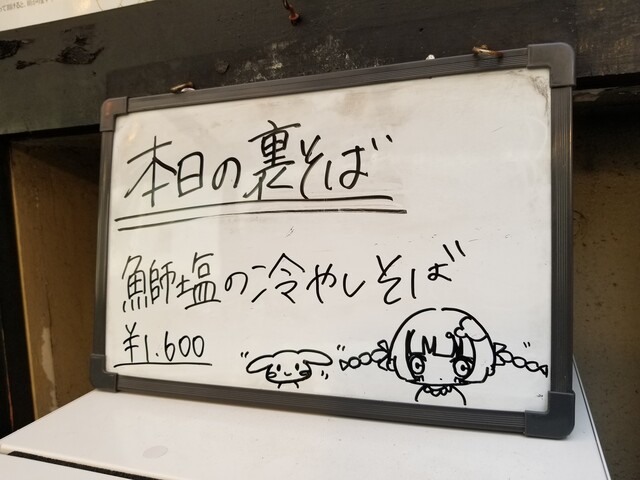 本日の裏そば
鰤塩の冷やしそば
¥1.600